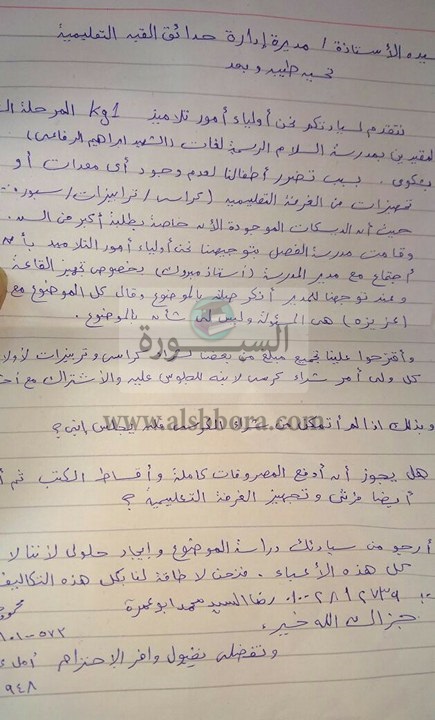 سيده الأستاذة / مديرة إدارة حدائق القبه التعليمية
تحيه طيبه وبعد
نتقدم لسيادتكم نحن أولياء أمور تلاميذ kg1 المرحلة
المقيدين بمدرسة السلام الرسمية لغات (الشهيد ابراهيم الرفاعى)
بشكوى، بسبب تضرر أطفالنا لعدم وجود أى معدات أو
تجهيزات من الغرفة التعليميه (كراسى / ترابيزات / سبورة
حيث أن الدسكات الموجودة الآن خاصة بطلبة أكبر من السن.
وقامت مدرسة الفصل بتوجيهنا نحن أولياء أمور التلاميذ
اجتماع مع مدير المدرسة (أستاذ مبروك) بخصوص تجهيز القاعة
وعند توجهنا للمدير أنكر صلته بالموضوع وقال كل الموضوع مع
(عزيزه) هى المسئولة وليس لى شأن بالموضوع.
السبورة
وأقترحوا علينا تجميع مبلغ من بعضنا لشراء كراسى وتربيزات
كل ولى أمر شراء كرسى لابنه للجلوس عليه والأشتراك مع
www.alshbora.com
وبذلك اذا لم أتمكن من شراء الكرسى فأين يجلس إبنى؟
هل يجوز أن أدفع المصروفات كاملة وأقساط الكتب ثم
أيضا فرش وتجهيز الغرفة التعليمية؟
أرجو من سيادتك دراسة الموضوع وإيجاد حلول لأننا لا
كل هذه الأعباء. فنحن لا طاقة لنا بكل هذه التكاليف
رضا السيد محمد ابو عمرة
جزاك الله خير،
وتفضلى بقبول وافر الإحترام
٩٤٨